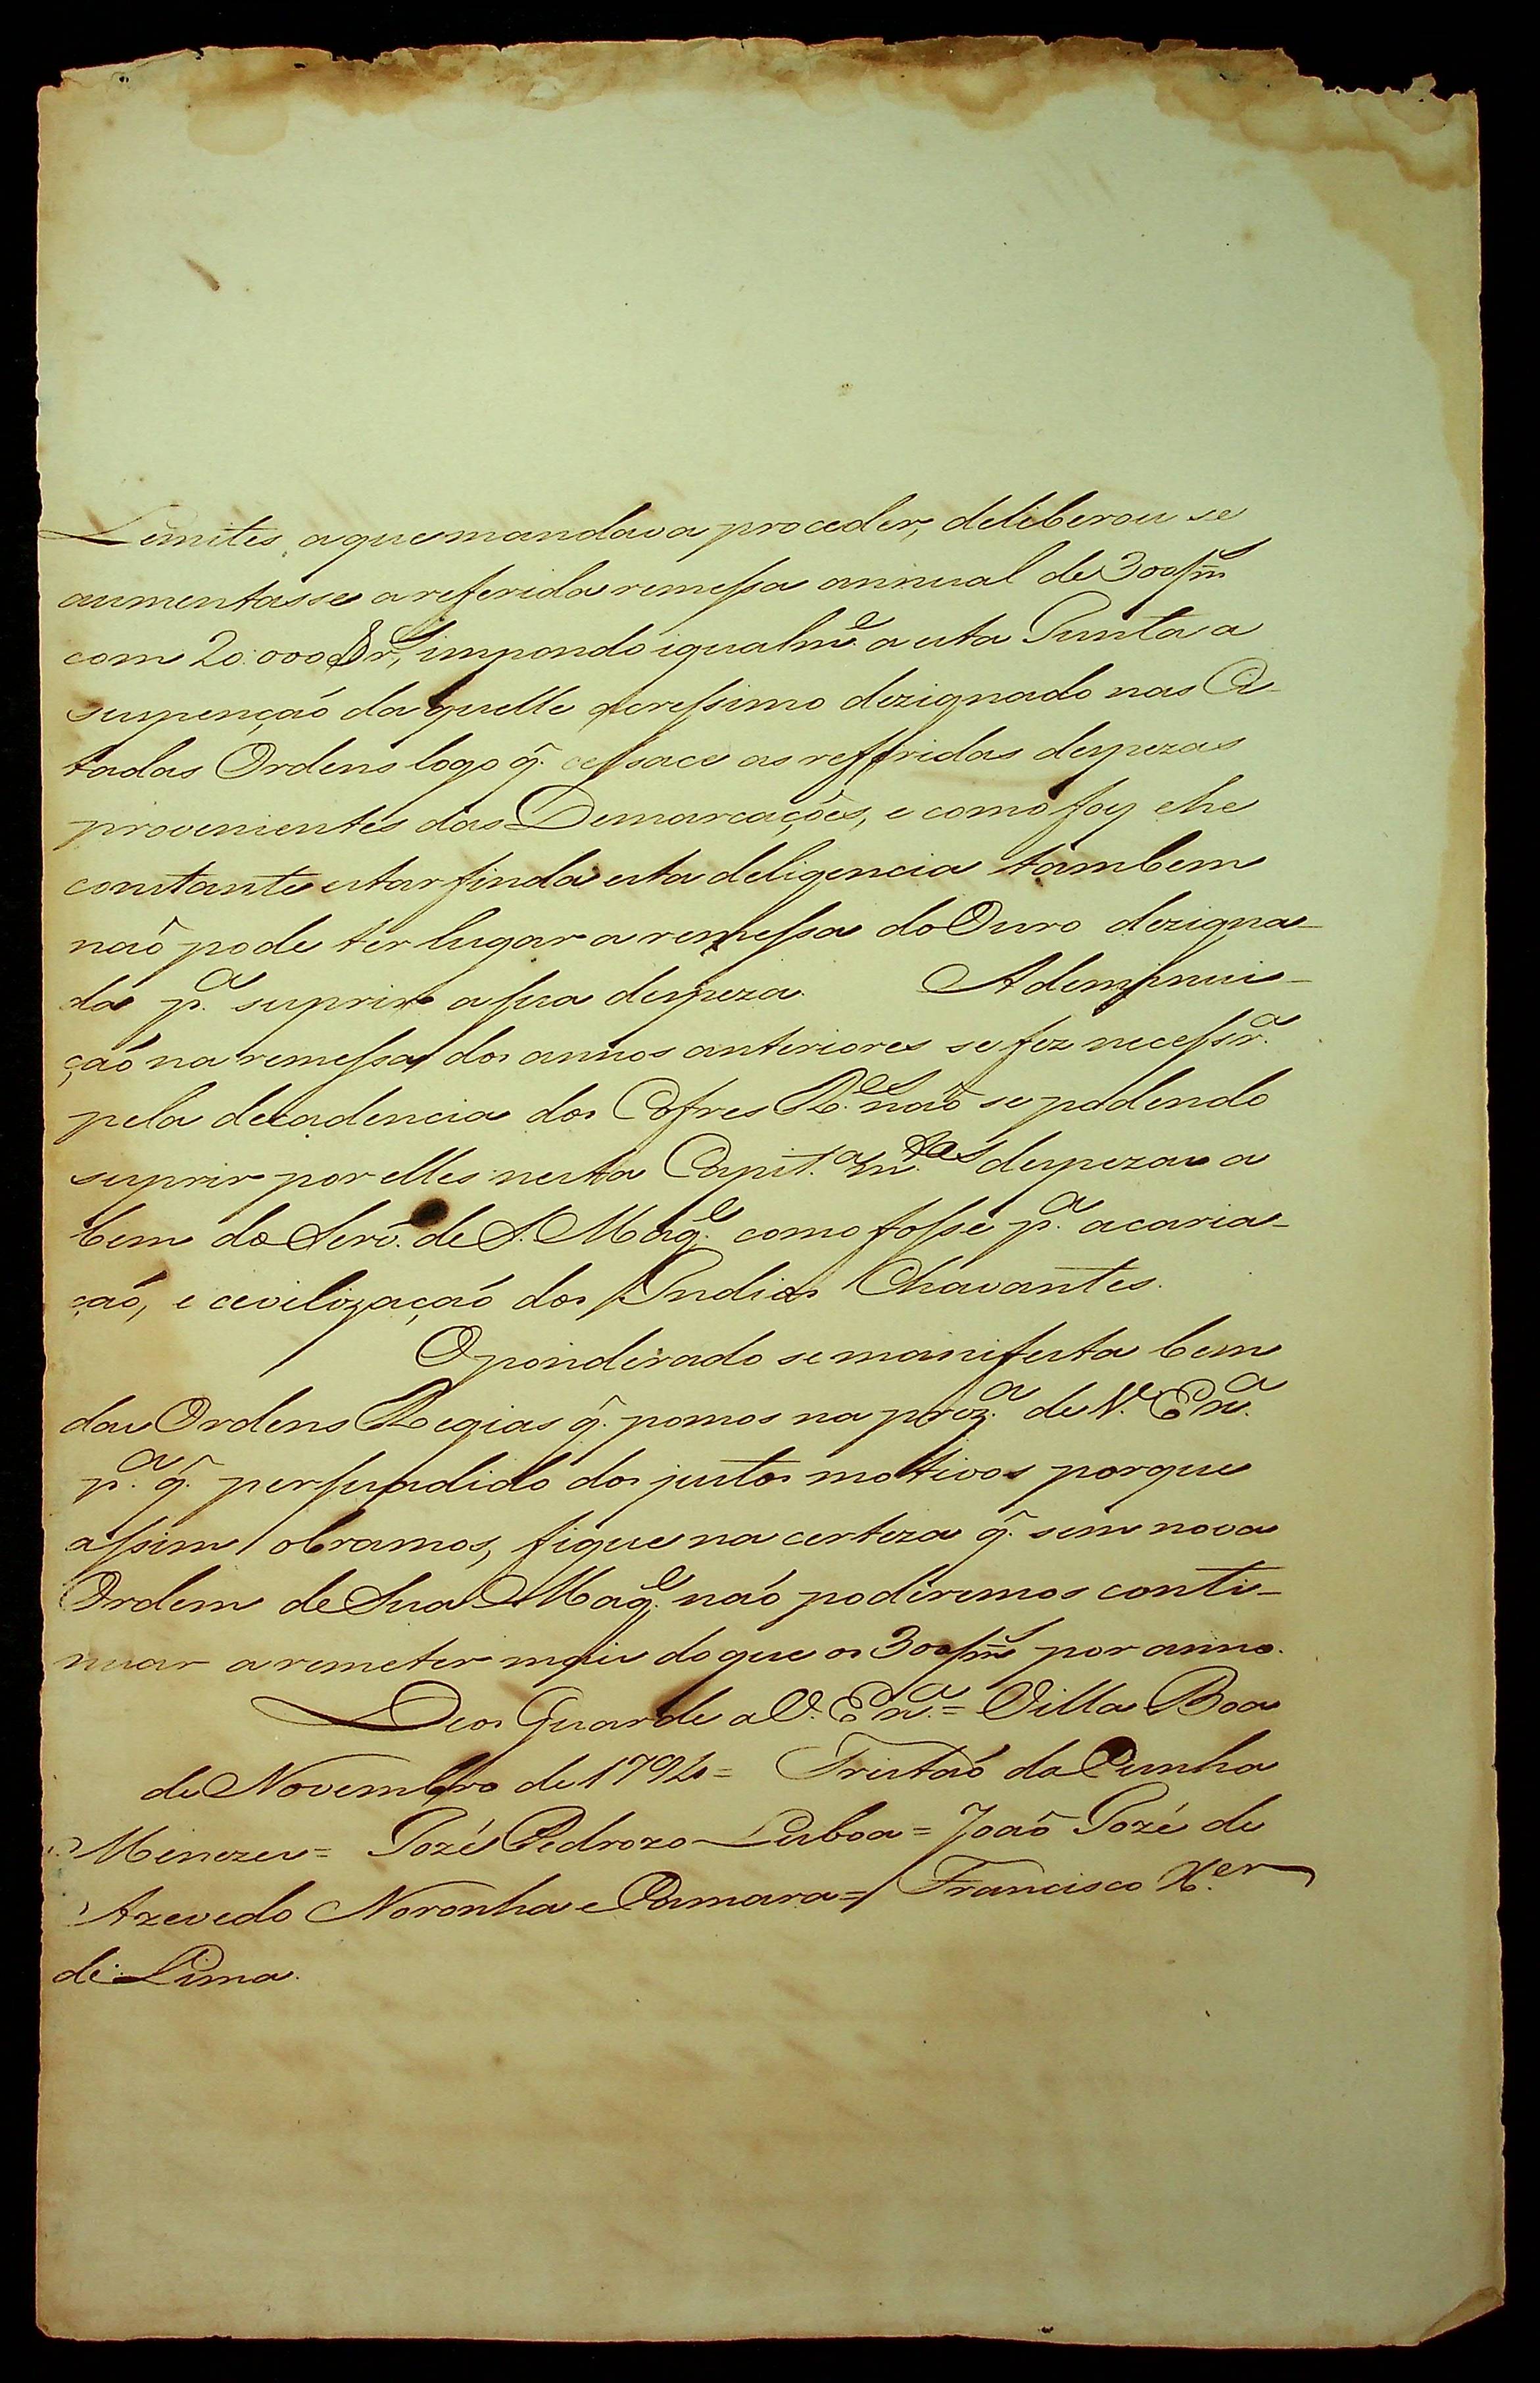 Lemites, a que mandava proceder, deliberou se
aumentasse a referida remessa annual de 300/m̃
com 20:000$r.s, impondo igualm.e a esta Junta a
suspençaõ daquelle acressimo dezignado nas Ci-
tadas Ordens logo q̃. cessace as refferidas despezas
provenientes das Demarcações, e como foy e he
constante estar finda esta deligencia tambem
naõ pode ter lugar a remessa do Ouro dezigna-
da p.a suprir a sua despeza. A deminui-
çaõ na remessa dos annos anteriores se fez necessr.a
pela decadencia dos Cofres R.es naõ se podendo
suprir por elles nesta Capit.a m.tas despezas a
bem do Serv. de S. Mag.e como fosse p.a a caria-
çaõ, e cevilizaçaõ dos Indios Chavantes.
O ponderado se manifesta bem
das Ordens Regias q̃. pomos na prez.a de V. Ex.a
p.a q̃. persuadido dos justos motivos porque
assim obramos, fique na certeza q̃. sem nova
Ordem de Sua Mag.e naõ poderemos conti-
nuar a remeter mais do que os 300/m̃ por anno.
Deos Guarde a V. Ex.a = Villa Boa
de Novembro de 1794 = Tristaõ da Cunha
Menezes = Jozé Pedrozo Lisboa = Joaõ Jozé de
Azevedo Noronha e Camara = Francisco X.er
de Lima.